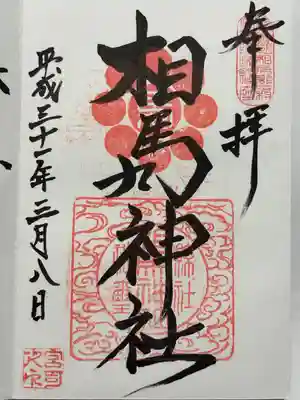 奉拝
相馬神社
平成三十一年三月八日